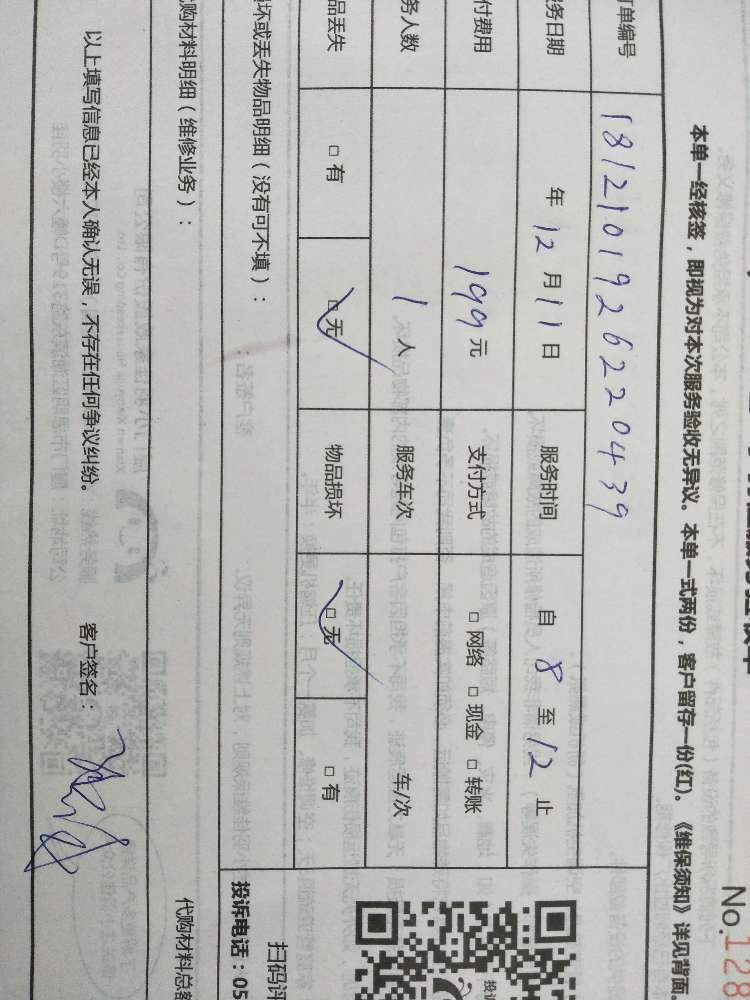 No.128
本单一经核签，即视为对本次服务验收无异议。本单一式两份，客户留存一份(红)。《维保须知》详见背面
单编号 18121019262220439
务日期 年 12 月 11 日 服务时间 自 8 至 12 止
付费用 199 元 支付方式 □ 网络 □ 现金 □ 转账
务人数 1 人 服务车次 车/次
品丢失 □ 有 □ 无 物品损坏 □ 无 □ 有
坏或丢失物品明细（没有可不填）：
投诉电话：05
扫码评
代购材料明细（维修业务）：
代购材料总
以上填写信息已经本人确认无误，不存在任何争议纠纷。 客户签名：